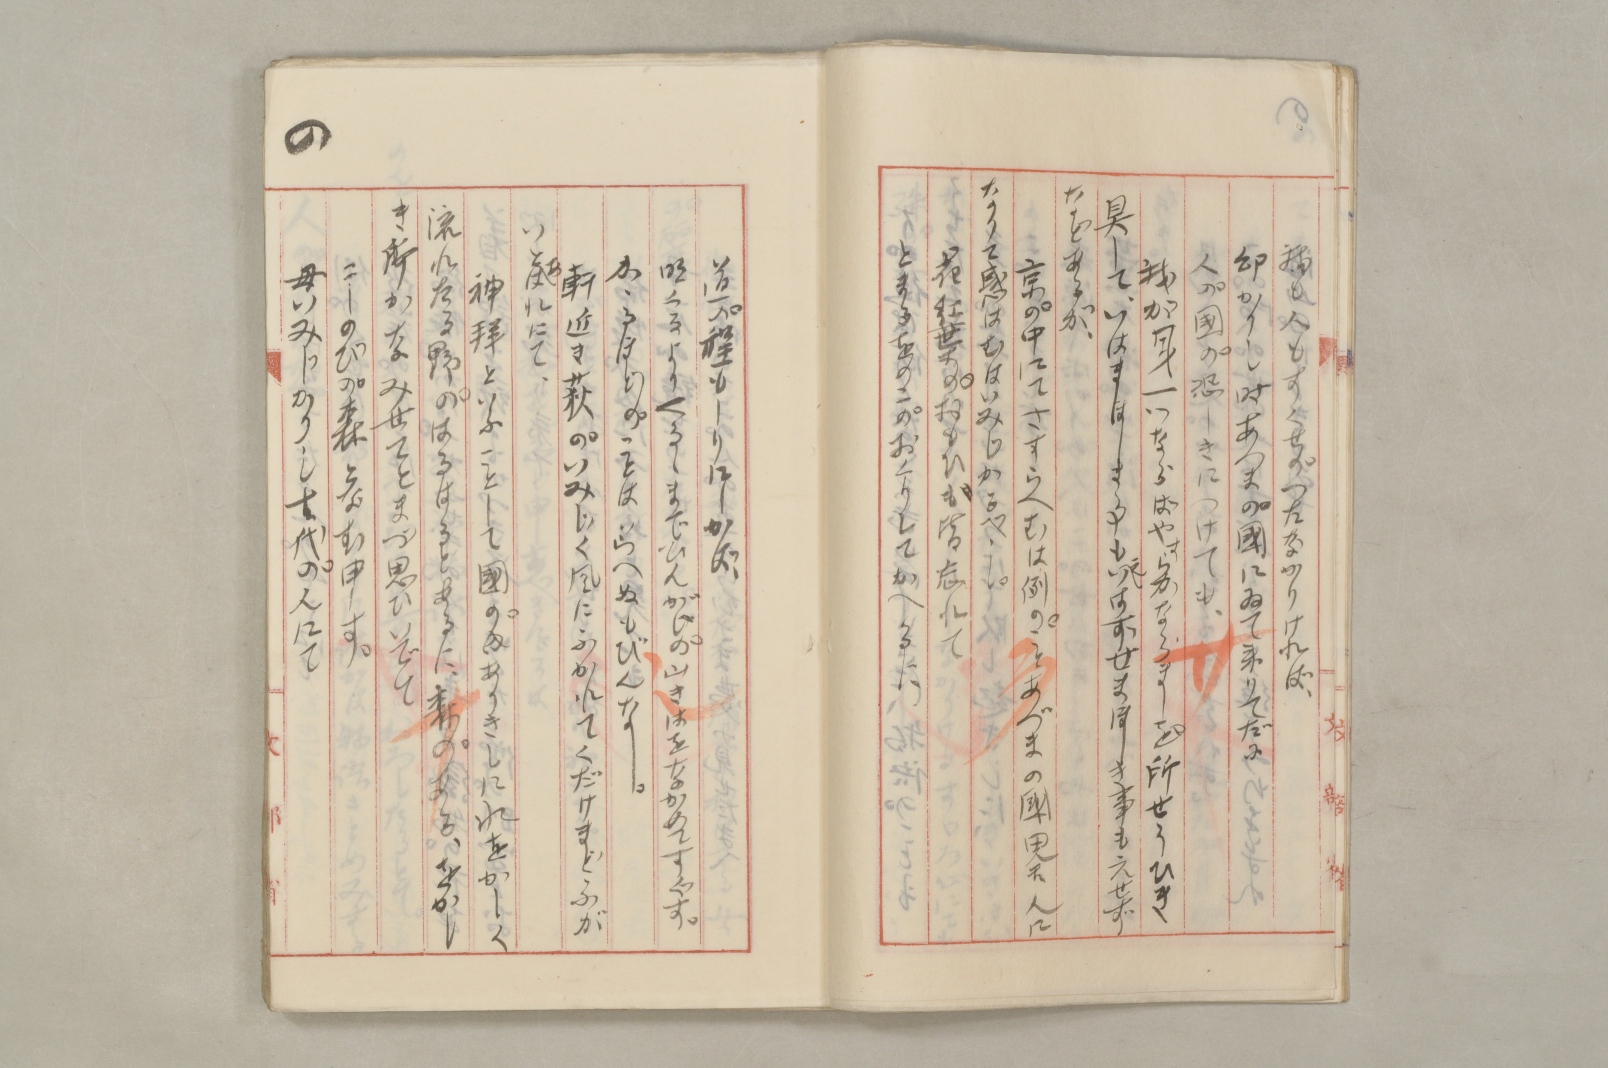 我も人もすくせのつたなかりければ、
幼かりし時あづまの國にゐて来りてだに
人の國の恐しきにつけても、
我が身一ツならばやすらかならましを所せうひき
具して、いはまほしきるもえいはずせまほしき事もえせず
などあるが、
京の中にてさすらへむは例のことあづまの國田舎人に
なりて惑はむはいみじかるべし
花紅葉のおもひも皆忘れて
とまるをのこのおくりしてかへるに、
文部省
の
道の程もしりにしかば、
明くるよりくるゝまでひんがしの山ぎはをながめてすぐす。
かゝるほどのことはいらへぬもびんなし。
軒近き荻のいみじく風にふかれてくだけまどふが
いと哀れにて、
神拜といふことして國の内ありきしに水をかしく
流れたる野のはるはるとあるに、森のある、をかし
き所かなみせでとまづ思ひいでて
こしのびの森となむ申す。
母いみじかりし古代の人にて
文部省